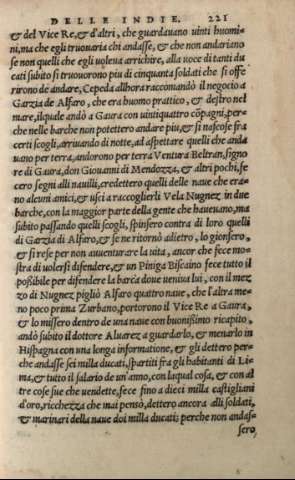 DELLE INDIE. 221
& del Vice Re, & d'altri, che guardauano uinti huomi-
ni, ma che egli truouaria chi andasse, & che non andariano
se non quelli che egli uoleua arrichire, alla uoce di tanti du
cati subito si truouorono piu di cinquanta soldati che si offe
rirono de andare, Cepeda allhora raccomandò il negocio a
Garzia de Alfaro, che era buomo pratico, & destro nel
mare, ilquale andò a Gaura con uintiquattro cõpagni, per-
che nelle barche non potettero andare piu, & si nascose fra
certi scogli, arriuando di notte, ad aspettare quelli che anda
uano per terra, andorono per terra Ventura Beltran, signo
re di Gaura, don Giouanni di Mendozza, & altri pochi, fe
cero segni alli nauilli, credettero quelli delle naue che era-
no alcuni amici, & usci a raccoglierli Vela Nugnez in due
barche, con la maggior parte della gente che haueuano, ma
subito passando quelli scogli, spinsero contra di loro quelli
di Garzia di Alfaro, & se ne ritornò adietro, lo gionsero,
& si rese per non auuenturare la uita, ancor che fece mo-
stra di uolersi difendere, & un Piniga Biscaino fece tutto il
possibile per difendere la barca doue ueniua lui, con il mez
zo di Nugnez pigliò Alfaro quattro naue, che l'altra me-
no poco prima Zurbano, portorono il Vice Re a Gaura,
& lo missero dentro de una naue con buonissimo ricapito,
andò subito il dottore Aluarez a guardarlo, & menarlo in
Hispagna con una longa informatione, & gli dettero per-
che andasse sei milla ducati, spartiti fra gli habitanti di Li-
ma, & tutto il salario de un'anno, con laqual cosa, & con al
tre cose sue che uendette, fece fino a dieci milla castigliani
d'oro, ricchezza che mai pensò, dettero ancora alli soldati,
& marinari della naue doi milla ducati; perche non andas-
sero,